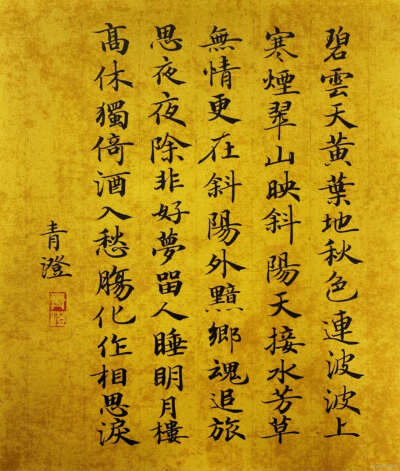 碧雲天黃葉地秋色連波波上
寒煙翠山映斜陽天接水芳草
無情更在斜陽外黯鄉魂追旅
思夜夜除非好夢留人睡明月樓
高休獨倚酒入愁腸化作相思淚
青澄